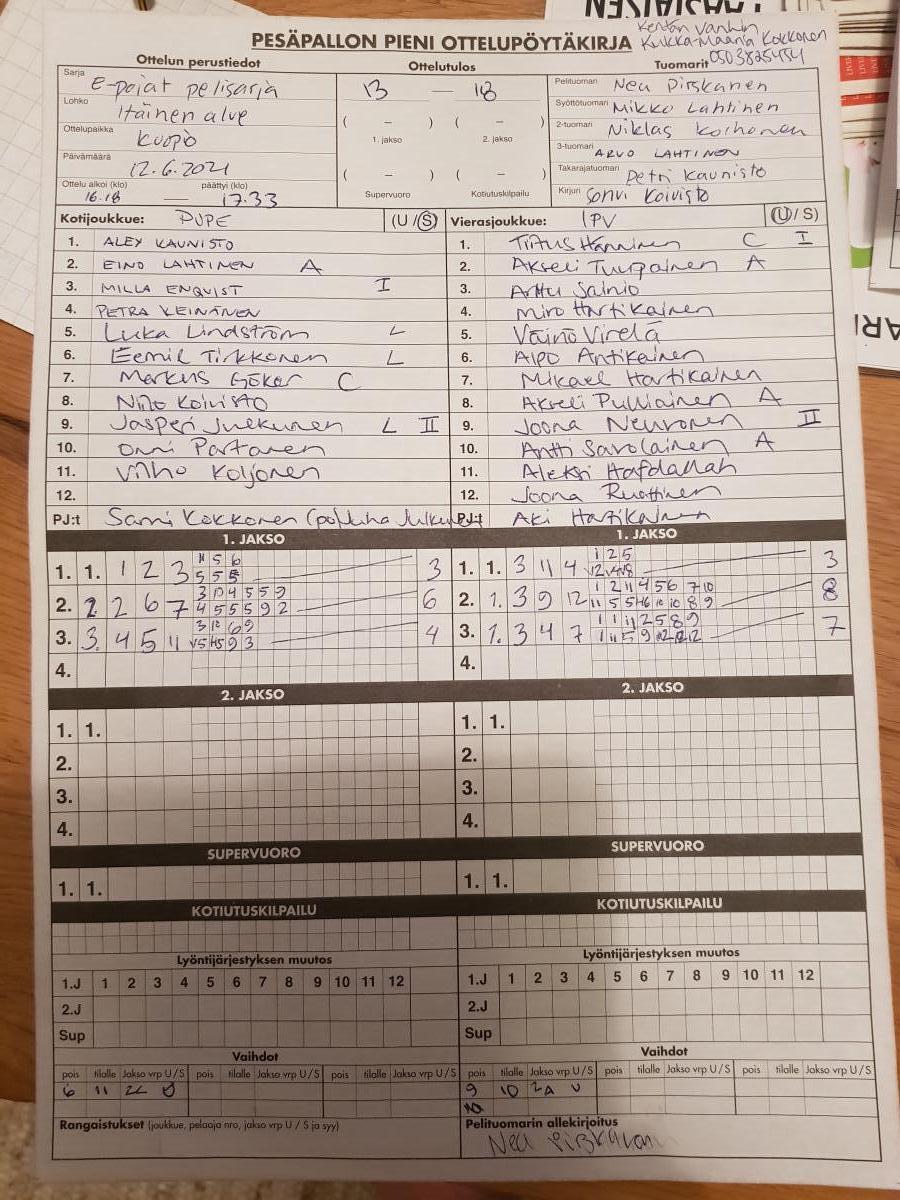 Kentän vanhin
Kukka-Maaria Kokkonen
0503825454
PESÄPALLON PIENI OTTELUPÖYTÄKIRJA
Ottelun perustiedot
Ottelutulos
Tuomarit
Sarja E-pojat pelisarja
Lohko Itäinen alue
Ottelupaikka Kuopio
Päivämäärä 12.6.2021
Ottelu alkoi (klo) päättyi (klo)
16.18 — 17.33
13 — 18
( – ) ( – )
1. jakso 2. jakso
( – ) ( – )
Supervuoro Kotiutuskilpailu
Pelituomari Nea Pirskanen
Syöttötuomari Mikko Lahtinen
2-tuomari Niklas Korhonen
3-tuomari ARVO LAHTINEN
Takarajatuomari Petri Kaunisto
Kirjuri Sonvi Koivisto
Kotijoukkue: PUPE (U / S)
1. ALEX KAUNISTO
2. EINO LAHTINEN A
3. MILLA ENQVIST I
4. PETRA KEINÄNEN
5. Luka Lindström L
6. Eemil Tirkkonen L
7. Markus Göker C
8. Niilo Koivisto
9. Jasperi Julkunen L II
10. Onni Partanen
11. Vilho Koljonen
12.
PJ:t Sami Kokkonen
Vierasjoukkue: IPV (U / S)
1. Titus Hänninen C I
2. Akseli Turpainen A
3. Arttu Sainio
4. Miro Hartikainen
5. Väinö Virelä
6. Alpo Antikainen
7. Mikael Hartikainen
8. Akseli Pulliainen A
9. Joona Neuvonen II
10. Antti Savolainen A
11. Aleksi Hafdallah
12. Joona Ruottinen
PJ:t Aki Hartikainen
1. JAKSO
1. 1. 1 2 3 3
2. 2 2 6 7 6
3. 3. 4 5 11 4
4.
1. JAKSO
1. 1. 3 11 4 3
2. 1. 3 9 12 8
3. 1. 3 4 7 7
4.
2. JAKSO
1. 1.
2.
3.
4.
2. JAKSO
1. 1.
2.
3.
4.
SUPERVUORO
1. 1.
SUPERVUORO
1. 1.
KOTIUTUSKILPAILU
KOTIUTUSKILPAILU
Lyöntijärjestyksen muutos
1.J 1 2 3 4 5 6 7 8 9 10 11 12
2.J
Sup
Lyöntijärjestyksen muutos
1.J 1 2 3 4 5 6 7 8 9 10 11 12
2.J
Sup
Vaihdot
pois tilalle Jakso vrp U/S pois tilalle Jakso vrp U/S pois tilalle Jakso vrp U/S
6 11 2L U
Vaihdot
pois tilalle Jakso vrp U/S pois tilalle Jakso vrp U/S pois tilalle Jakso vrp U/S
9 10 2A U
Rangaistukset (joukkue, pelaaja nro, jakso vrp U / S ja syy)
Pelituomarin allekirjoitus
Nea Pirskanen